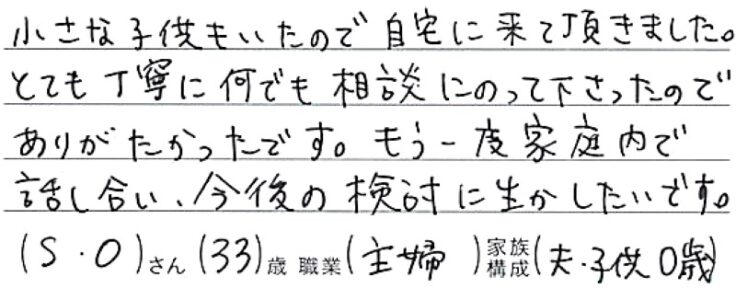 小さな子供もいたので自宅に来て頂きました。
とても丁寧に何でも相談にのって下さったので
ありがたかったです。もう一度家庭内で
話し合い、今後の検討に生かしたいです。
(S・O)さん(33)歳 職業(主婦)家族構成(夫・子供0歳)